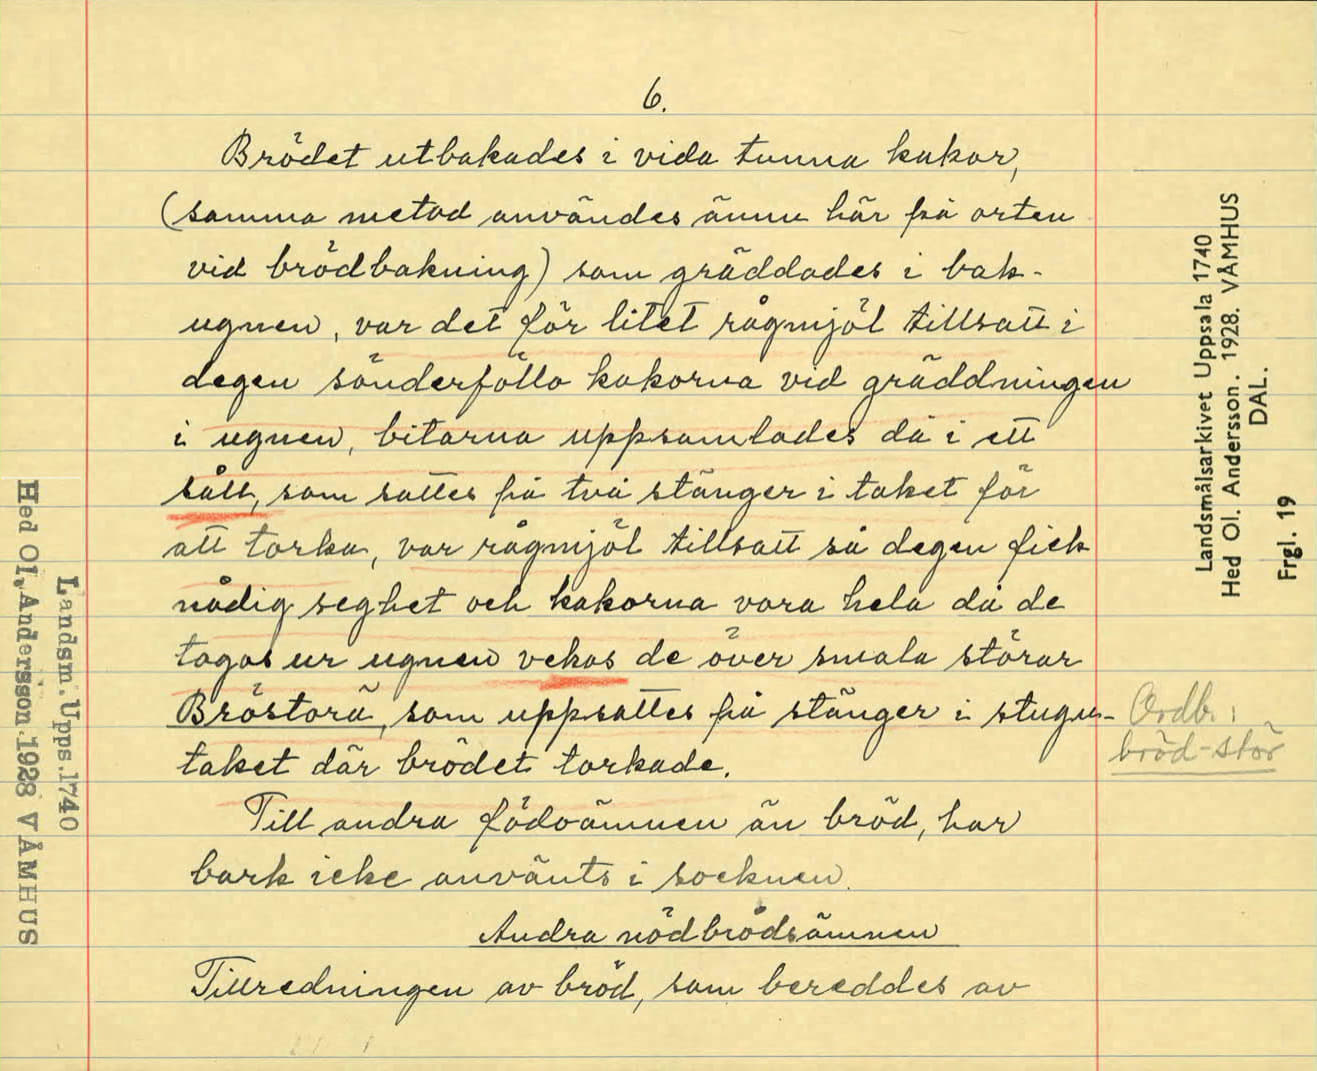 6.
Brödet utbakades i vida tunna kakor,
(samma metod användes ännu här på orten
vid brödbakning) som gräddades i bak-
ugnen, var det för litet rågmjöl tillsatt i
degen sönderföllo kakorna vid gräddningen
i ugnen, bitarna uppsamlades då i ett
såll, som sattes på två stänger i taket för
att torka, var rågmjöl tillsatt så degen fick
nödig seghet och kakorna vora hela då de
togos ur ugnen vekos de över smala störar
Bröstorä, som uppsattes på stänger i stugu-
taket där brödet torkade.
Till andra födoämnen än bröd, har
bark icke använts i socknen.
Andra nödbrödsämnen
Tillredningen av bröd, som bereddes av
Ordb.:
bröd-stör
Landsmålsarkivet Uppsala 1740
Hed Ol. Andersson. 1928. VÅMHUS
DAL.
Frgl. 19
Landsm. Upps. 1740
Hed Ol. Andersson. 1928 VÅMHUS